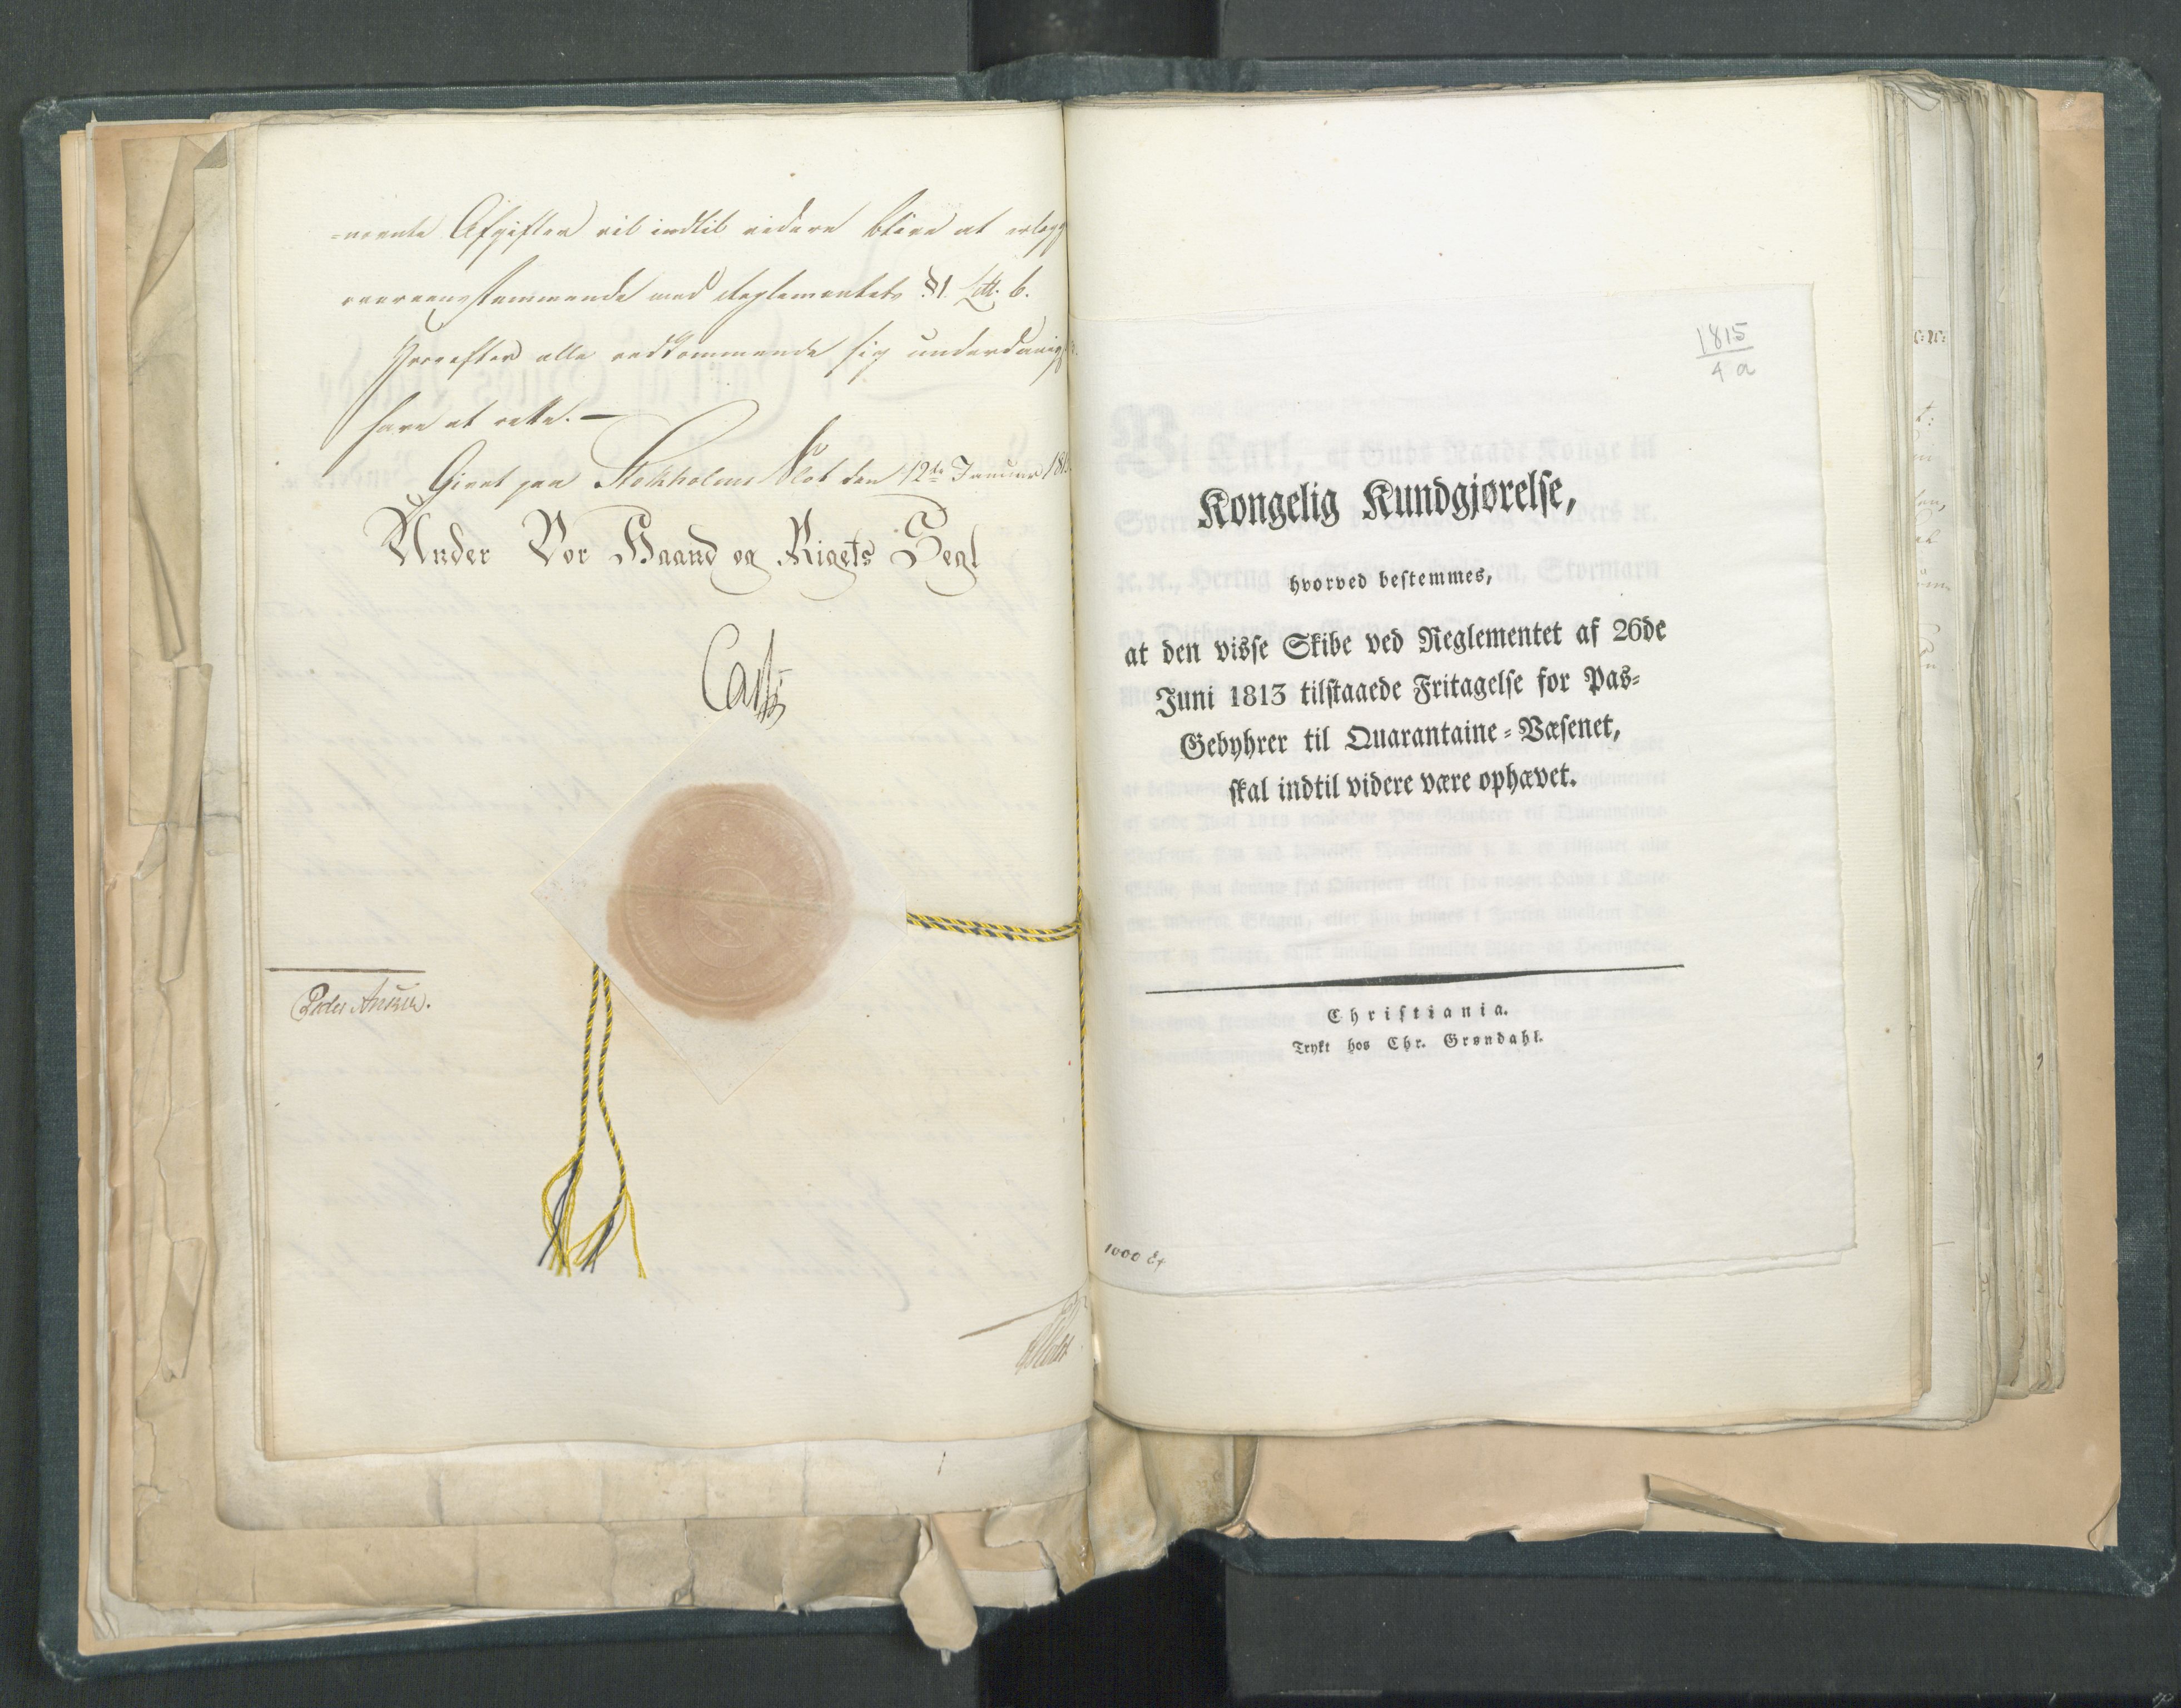 -nævnte Afgifter vil indtil videre blive at erlægge
overeensstemmende med Reglementets §1. Litt. b.
Hvorefter alle vedkommende sig underdanigst
have at rette.—
Givet paa Stokholms Slot den 12te Januar 181
Under Vor Haand og Rigets Segl
Carl
Peder Anker.
1815
4 a
Kongelig Kundgjørelse,
hvorved bestemmes,
at den visse Skibe ved Reglementet af 26de
Juni 1813 tilstaaede Fritagelse for Pas-
Gebyhrer til Quarantaine-Væsenet,
skal indtil videre være ophævet.
Christiania.
Trykt hos Chr. Grøndahl.
1000 Ex